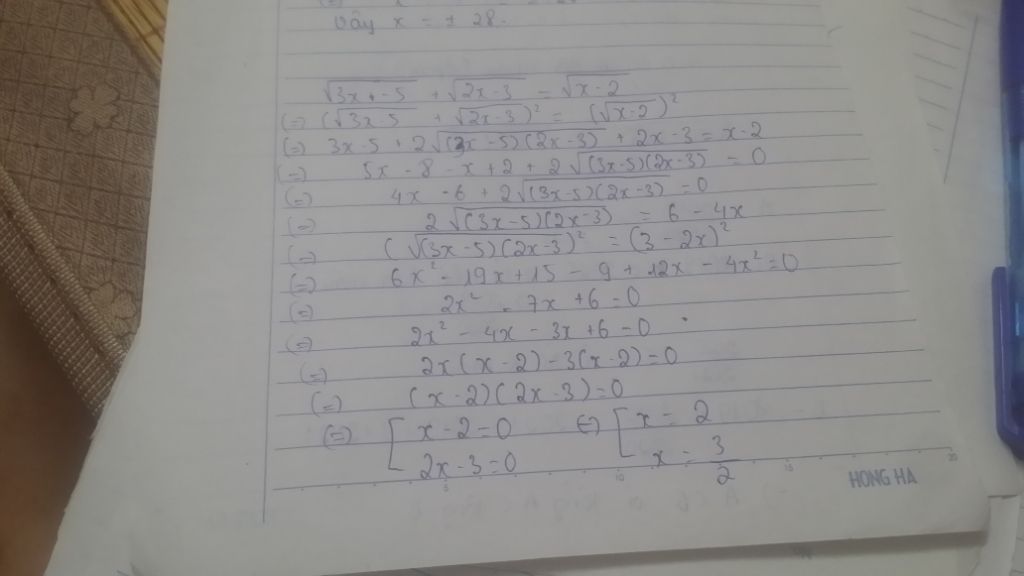 Vậy x = ± 28.
√3x+-5 + √2x-3 = √x-2
(=) (√3x-5 + √2x-3)² = (√x-2)²
(=) 3x-5 + 2√(3x-5)(2x-3) + 2x-3 = x-2
(=) 5x - 8 - x + 2 + 2√(3x-5)(2x-3) = 0
(=) 4x - 6 + 2√(3x-5)(2x-3) = 0
(=) 2√(3x-5)(2x-3) = 6 - 4x
(=) (√(3x-5)(2x-3)² = (3 - 2x)²
(=) 6x² - 19x + 15 - 9 + 12x - 4x² = 0
(=) 2x² - 7x + 6 = 0
(=) 2x² - 4x - 3x + 6 = 0
(=) 2x(x-2) - 3(x-2) = 0
(=) (x-2)(2x-3) = 0
(=) [ x-2=0 (=) [ x = 2
2x-3=0 x = 3/2
5 10 15 20
HONG HA